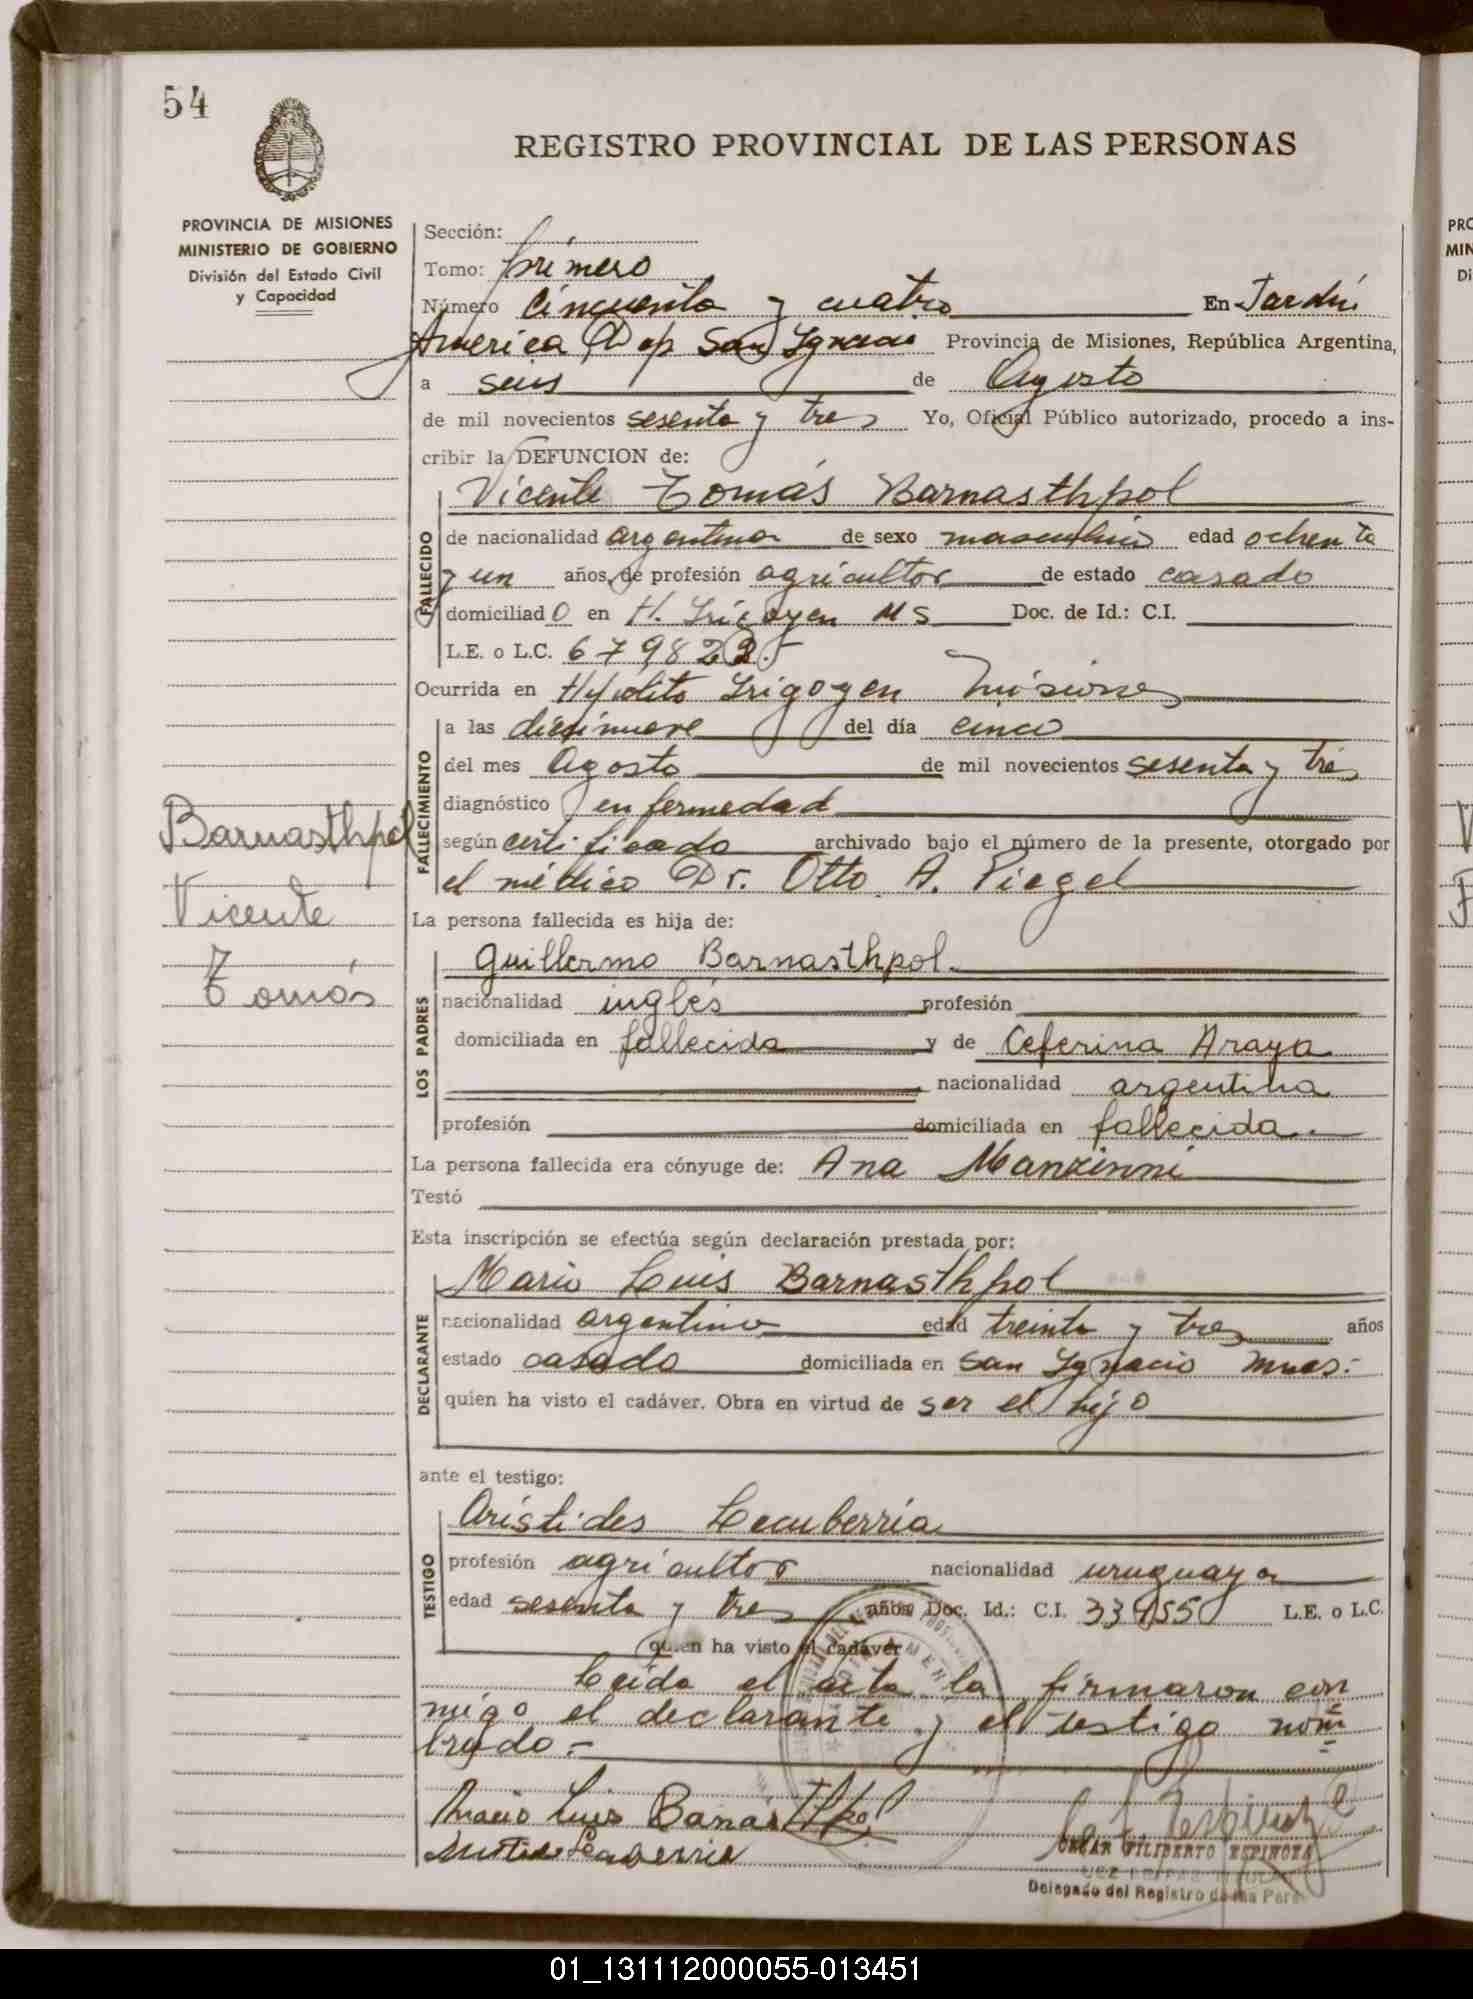 54
REGISTRO PROVINCIAL DE LAS PERSONAS
PROVINCIA DE MISIONES
MINISTERIO DE GOBIERNO
División del Estado Civil
y Capacidad
Sección:
Tomo: primero
Número cincuenta y cuatro En Jardín
America Dep San Ignacio Provincia de Misiones, República Argentina,
a seis de Agosto
de mil novecientos sesenta y tres Yo, Oficial Público autorizado, procedo a ins-
cribir la DEFUNCION de:
FALLECIDO
Vicente Tomás Barnasthpol
de nacionalidad argentina de sexo masculino edad ochenta
y un años, de profesión agricultor de estado casado
domiciliado en H. Irigoyen Ms Doc. de Id.: C.I.
L.E. o L.C.
Ocurrida en Hipólito Irigoyen Misiones
FALLECIMIENTO
a las diecinueve del día cinco
del mes Agosto de mil novecientos sesenta y tres
diagnóstico enfermedad
según certificado archivado bajo el número de la presente, otorgado por
el médico Dr. Otto A. Piegel
Barnasthpol
Vicente
Tomás
La persona fallecida es hija de:
LOS PADRES
Guillermo Barnasthpol.
nacionalidad inglés profesión
domiciliada en fallecida y de Ceferina Araya
nacionalidad argentina
profesión domiciliada en fallecida.-
La persona fallecida era cónyuge de: Ana Manzinni
Testó
Esta inscripción se efectúa según declaración prestada por:
DECLARANTE
Mario Luis Barnasthpol
nacionalidad argentino edad treinta y tres años
estado casado domiciliada en San Ignacio Mnes.-
quien ha visto el cadáver. Obra en virtud de ser el hijo
ante el testigo:
TESTIGO
Arístides Lecuberria
profesión agricultor nacionalidad uruguaya
edad sesenta y tres años Doc. Id.: C.I. L.E. o L.C.
quien ha visto el cadáver
Leida el acta la firmaron con
migo el declarante y el testigo nom
brado.-
Mario Luis Banasthpol
OSCAR GILIBERTO ESPINOZA
Delegado del Registro de las Pers
PRO
MIN
Di
01_131112000055-013451